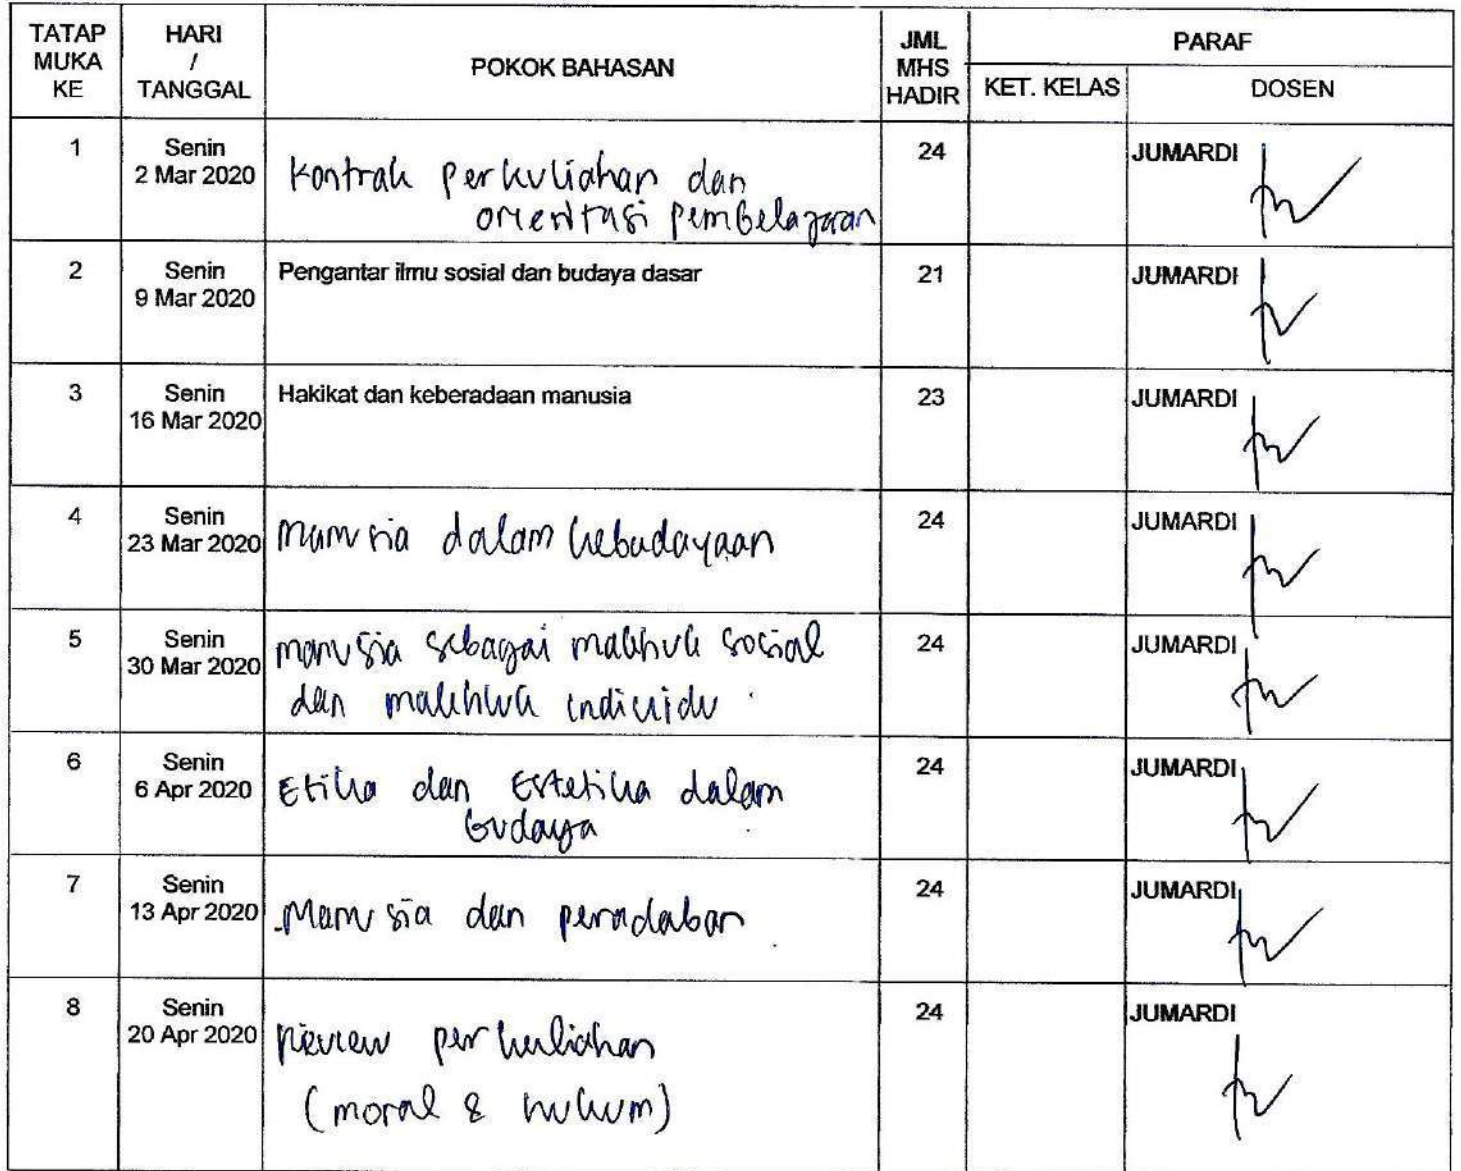 TATAP MUKA KE
HARI / TANGGAL
POKOK BAHASAN
JML MHS HADIR
PARAF
KET. KELAS
DOSEN
1
Senin
2 Mar 2020
Kontrak perkuliahan dan
orientasi pembelajaran
24
JUMARDI
2
Senin
9 Mar 2020
Pengantar ilmu sosial dan budaya dasar
21
JUMARDI
3
Senin
16 Mar 2020
Hakikat dan keberadaan manusia
23
JUMARDI
4
Senin
23 Mar 2020
Manusia dalam kebudayaan
24
JUMARDI
5
Senin
30 Mar 2020
manusia sebagai makhluk sosial
dan makhluk individu
24
JUMARDI
6
Senin
6 Apr 2020
Etika dan Estetika dalam
budaya
24
JUMARDI
7
Senin
13 Apr 2020
Manusia dan peradaban
24
JUMARDI
8
Senin
20 Apr 2020
Review perkuliahan
(moral & hukum)
24
JUMARDI